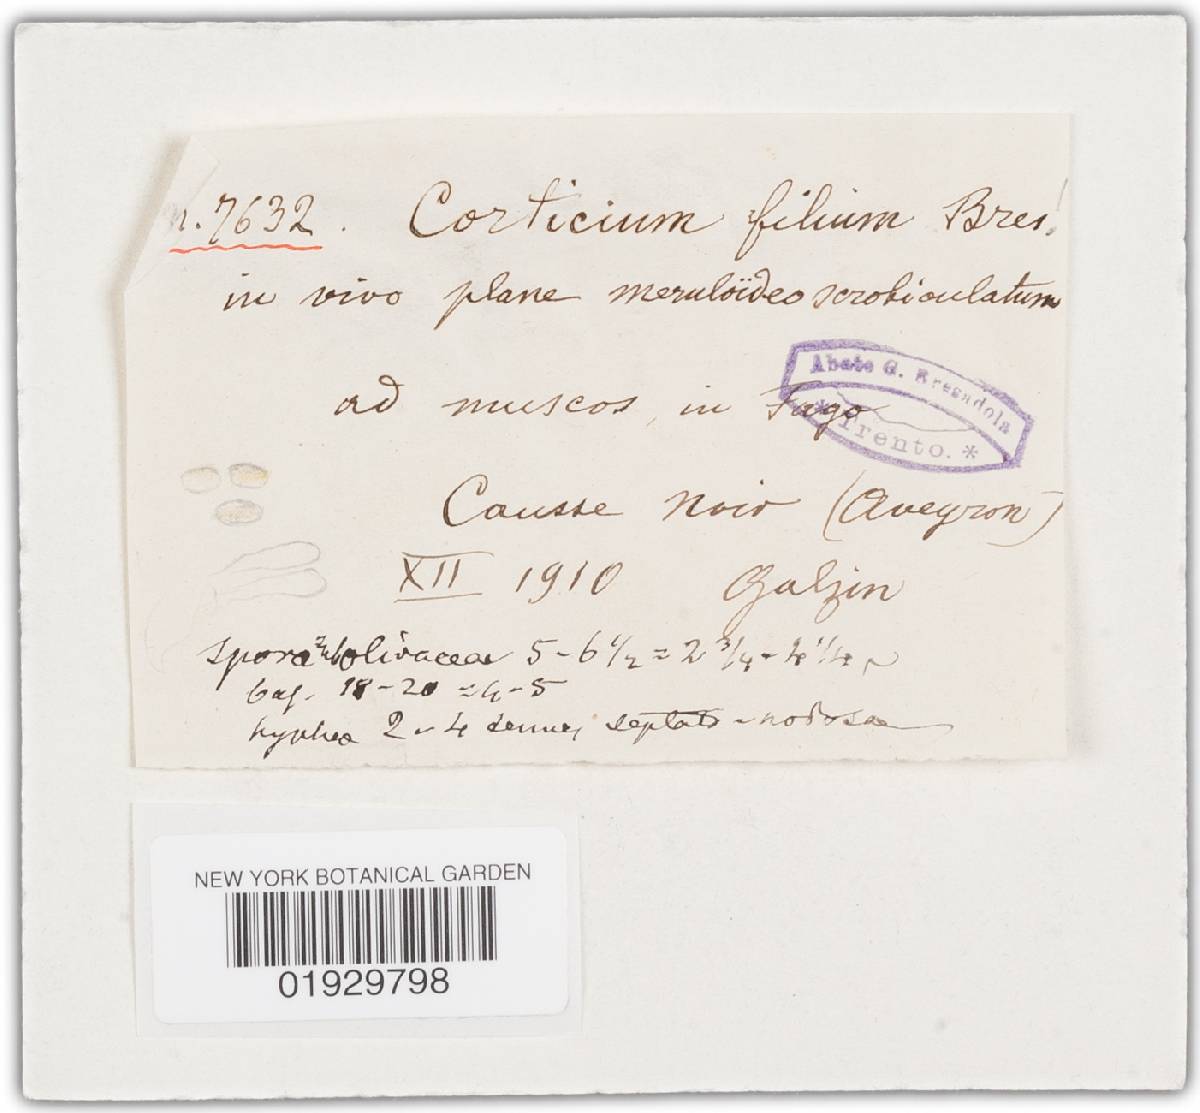 n. 7632. Corticium filium Bres!
in vivo plane meruloïdeo scrobiculatum
Abate G. Bresadola
* Trento. *
ad muscos, in Fago
Causse Noir (Aveyron)
XII 1910 Galzin
Spora olivaceae 5-6 1/2 = 2 3/4 - 4 1/4
bas. 18-20 = 4-5
hyphea 2-4 septato-nodosae
NEW YORK BOTANICAL GARDEN
01929798